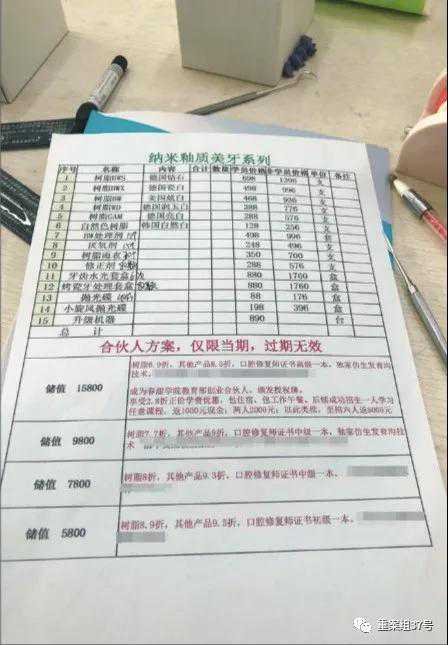 纳米釉质美牙系列
序号 名称 内容 合计 数量 学员价格 非学员价格 单位 备注
1 树脂HWS 德国钻石 698 1396 支
2 树脂HWX 德国瓷白 498 996 支
3 树脂HW 美国炫白 468 936 支
4 树脂WD 德国润玉白 288 576 支
5 树脂GAM 德国亮白 288 576 支
6 自然色树脂 韩国自然白 128 256 支
7 HW处理剂 498 996 套
8 厌氧剂 248 496 支
9 树脂雨衣 350 700 支
10 修正剂 288 576 支
11 牙齿水光套盒 880 1760 盒
12 烤瓷牙处理套盒 880 1760 盒
13 抛光碟 88 176 盒
14 小旋风抛光碟 198 396 盒
15 升级机器 890 台
总 计
合伙人方案，仅限当期，过期无效
储值 15800
树脂6.9折，其他产品8.5折，口腔修复师证书高级一本，独家仿生发育沟
技术，
成为春甜学院教育部创业合伙人，颁发授权牌，
享受2.8折正价学费优惠，包住宿，包工作午餐，后续成功招生一人学习
任意课程，返1000元现金，两人2000元；以此类推，
储值 9800
树脂7.7折，其他产品9折，口腔修复师证书中级一本，独家仿生发育沟技
术
储值 7800
树脂8折，其他产品9.3折，口腔修复师证书中级一本，
储值 5800
树脂8.9折，其他产品9.5折，口腔修复师证书初级一本，
重案组37号